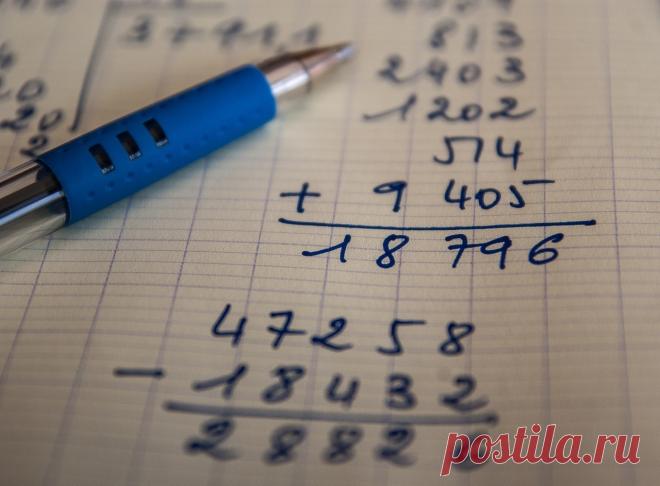 3 + 41,1
20
20
2
813
2403
1202
514
+ 9 405
18 796
47258
- 18432
2882
postila.ru